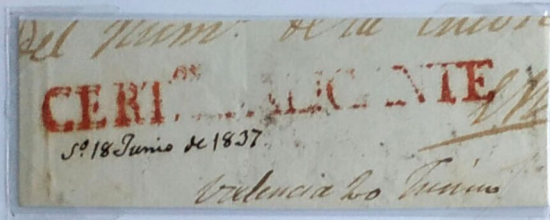 del Num. de la
CERT.on ALICANTE
So. 18 Junio de 1837.
Valencia 20 Junio